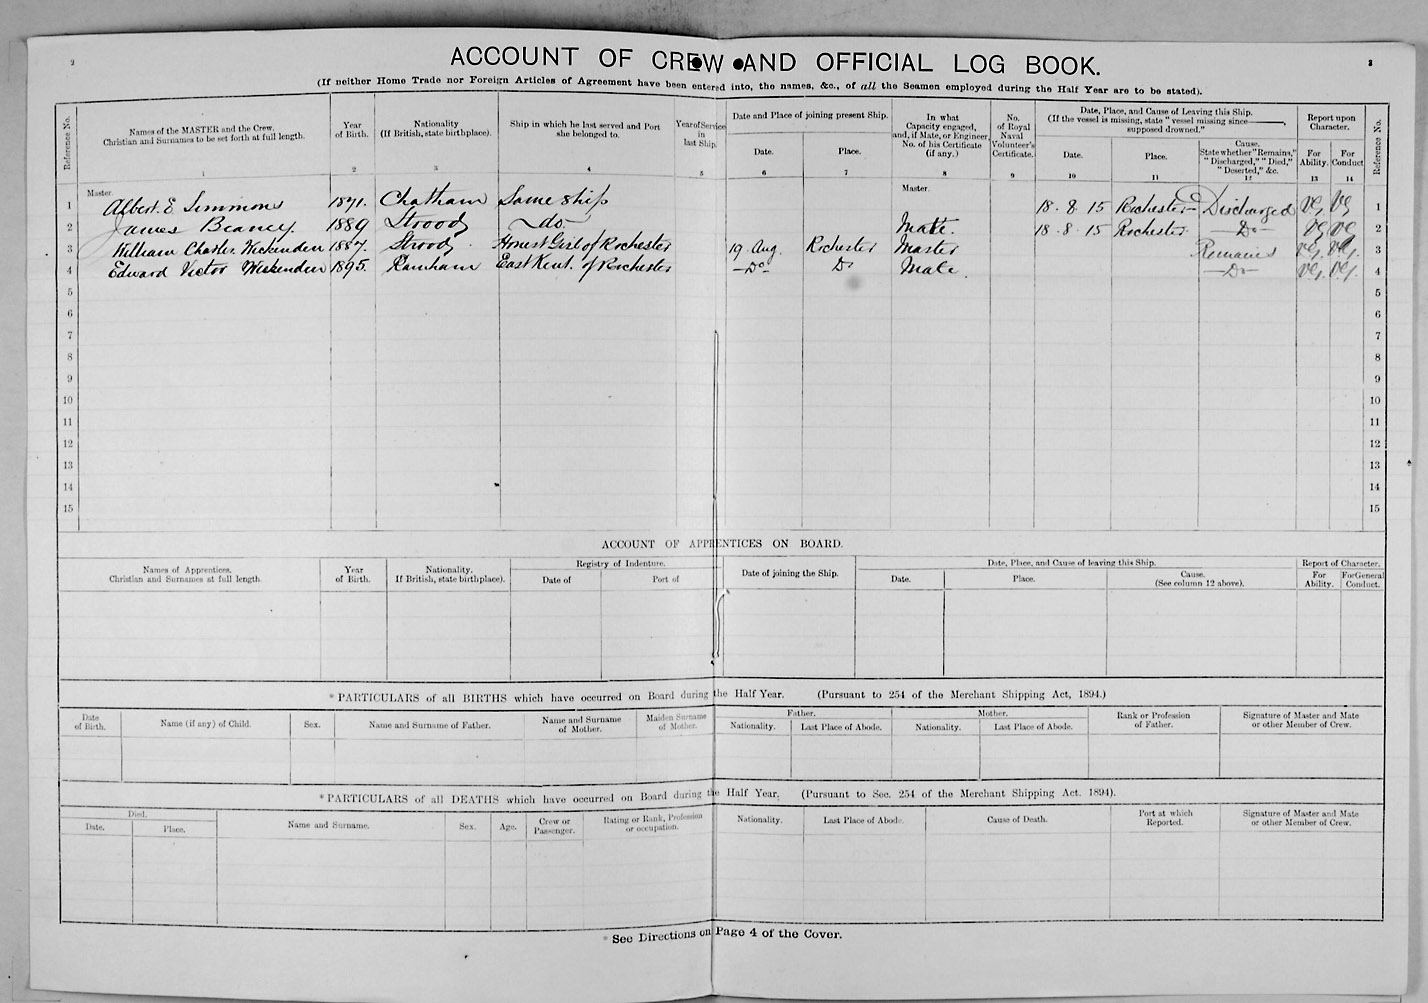 2
3
ACCOUNT OF CREW AND OFFICIAL LOG BOOK.
(If neither Home Trade nor Foreign Articles of Agreement have been entered into, the names, &c., of all the Seamen employed during the Half Year are to be stated).
Reference No. Names of the MASTER and the Crew. Christian and Surnames to be set forth at full length. Year of Birth. Nationality (If British, state birthplace). Ship in which he last served and Port she belonged to. Year of Service in last Ship. Date and Place of joining present Ship. Date. Place. In what Capacity engaged, and, if Mate, or Engineer, No. of his Certificate (if any.) No. of Royal Naval Volunteer's Certificate. Date, Place, and Cause of Leaving this Ship. (If the vessel is missing, state "vessel missing since ———, supposed drowned." Date. Place. Cause. State whether "Remains," "Discharged," "Died," "Deserted," &c. Report upon Character. For Ability. For Conduct Reference No.
1 2 3 4 5 6 7 8 9 10 11 12 13 14
Master. Master.
1 Albert. E Simmons 1871. Chatham Same ship 18 . 8 15 Rochester Discharged VG VG 1
2 James Beaney. 1889 Stroood do. Mate. 18 . 8 15 Rochester Do VG VG 2
3 William Charles Wickenden 1887. Strood. Honest Girl of Rochester 19 Aug. Rochester Master Remains VG. VG. 3
4 Edward Victor Wickenden 1895. Rainham East Kent. of Rochester Do Do Mate. Do VG. VG. 4
5 5
6 6
7 7
8 8
9 9
10 10
11 11
12 12
13 13
14 14
15 15
ACCOUNT OF APPRENTICES ON BOARD.
Names of Apprentices. Christian and Surnames at full length. Year of Birth. Nationality. If British, state birthplace). Registry of Indenture. Date of Port of Date of joining the Ship. Date, Place, and Cause of leaving this Ship. Date. Place. Cause. (See column 12 above). Report of Character. For Ability. For General Conduct.
*PARTICULARS of all BIRTHS which have occurred on Board during the Half Year. (Pursuant to 254 of the Merchant Shipping Act, 1894.)
Date of Birth. Name (if any) of Child. Sex. Name and Surname of Father. Name and Surname of Mother. Maiden Surname of Mother. Father. Nationality. Last Place of Abode. Mother. Nationality. Last Place of Abode. Rank or Profession of Father. Signature of Master and Mate or other Member of Crew.
*PARTICULARS of all DEATHS which have occurred on Board during the Half Year. (Pursuant to Sec. 254 of the Merchant Shipping Act. 1894).
Died. Date. Place. Name and Surname. Sex. Age. Crew or Passenger. Rating or Rank, Profession or occupation. Nationality. Last Place of Abode. Cause of Death. Port at which Reported. Signature of Master and Mate or other Member of Crew.
* See Directions on Page 4 of the Cover.